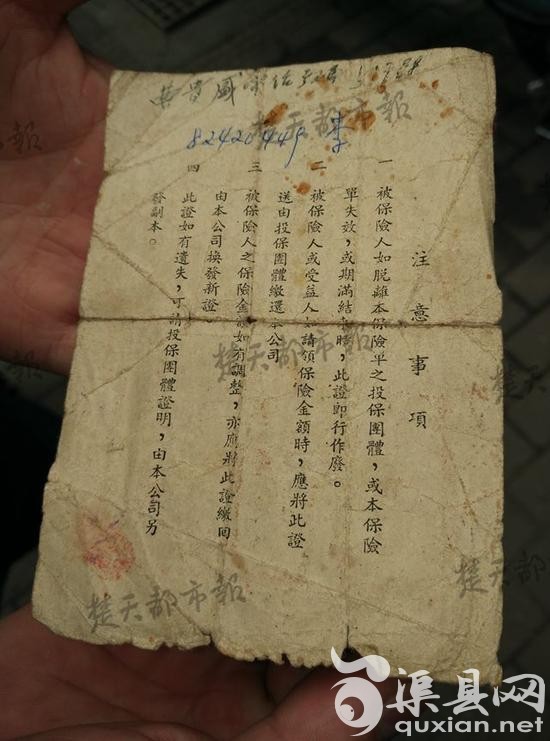 82420449 李
注意事項
一 被保險人如脫離本保險單之投保團體，或本保險
單失效，或期滿結束時，此證即行作廢。
二 被保險人或受益人如請領保險金額時，應將此證
送由投保團體繳還本公司
三 被保險人之保險金額如有調整，亦應將此證繳回
由本公司換發新證
四 此證如有遺失，可請投保團體證明，由本公司另
發副本。
楚天都市報
楚天都市報
楚天都市報
楚天都市報
楚天都市報
渠县网
quxian.net